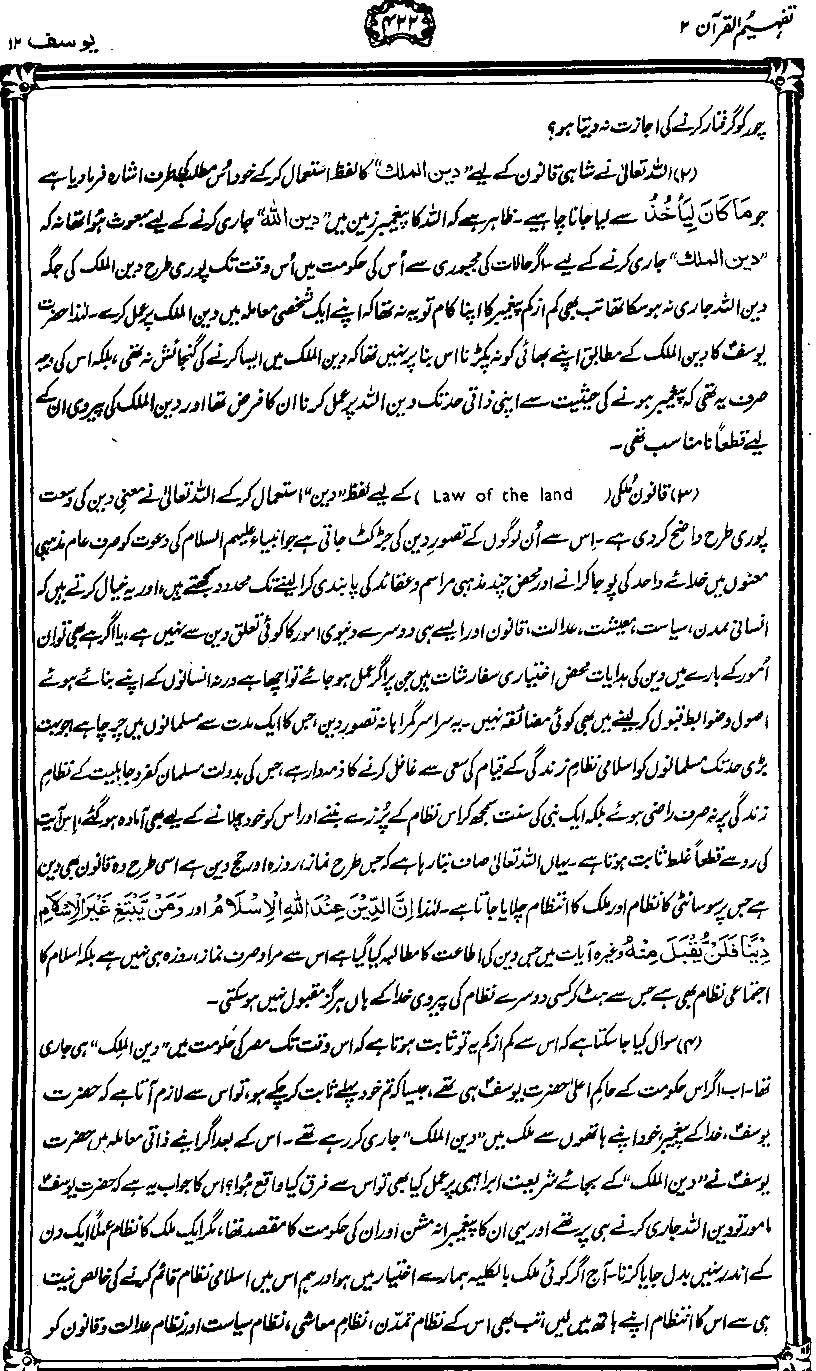 تفہیم القرآن ۲
۴۲۲
یوسف ۱۲
چور کو گرفتار کرنے کی اجازت نہ دیتا ہو؟
(۲) اللہ تعالیٰ نے شاہی قانون کے لیے ”دین الملک“ کا لفظ استعمال کر کے خود اُس مطلب کی طرف اشارہ فرما دیا ہے
جو مَا کَانَ لِیَاْخُذَ سے لیا جانا چاہیے۔ ظاہر ہے کہ اللہ کا پیغمبر زمین میں ”دین اللہ“ جاری کرنے کے لیے مبعوث ہوا تھا نہ کہ
”دین الملک“ جاری کرنے کے لیے۔ اگر حالات کی مجبوری سے اُس کی حکومت میں اُس وقت تک پوری طرح دین الملک کی جگہ
دین اللہ جاری نہ ہو سکا تھا تب بھی کم از کم پیغمبر کا اپنا کام تو یہ نہ تھا کہ اپنے ایک شخصی معاملہ میں دین الملک پر عمل کرے۔ لہٰذا حضرت
یوسفؑ کا دین الملک کے مطابق اپنے بھائی کو نہ پکڑنا اس بنا پر نہیں تھا کہ دین الملک میں ایسا کرنے کی گنجائش نہ تھی، بلکہ اس کی وجہ
صرف یہ تھی کہ پیغمبر ہونے کی حیثیت سے اپنی ذاتی حد تک دین اللہ پر عمل کرنا ان کا فرض تھا اور دین الملک کی پیروی ان کے
لیے قطعاً نامناسب تھی۔
(۳) قانونِ مُلکی (Law of the land) کے لیے لفظ ”دین“ استعمال کر کے اللہ تعالیٰ نے معنیِ دین کی وسعت
پوری طرح واضح کر دی ہے۔ اِس سے اُن لوگوں کے تصورِ دین کی جڑ کٹ جاتی ہے جو انبیاء علیہم السلام کی دعوت کو صرف عام مذہبی
معنوں میں خدائے واحد کی پوجا کرانے اور محض چند مذہبی مراسم و عقائد کی پابندی کرا لینے تک محدود سمجھتے ہیں، اور یہ خیال کرتے ہیں کہ
انسانی تمدن، سیاست، معیشت، عدالت، قانون اور ایسے ہی دوسرے دنیوی امور کا کوئی تعلق دین سے نہیں ہے، یا اگر ہے بھی تو اِن
اُمور کے بارے میں دین کی ہدایات محض اختیاری سفارشات ہیں جن پر اگر عمل ہو جائے تو اچھا ہے ورنہ انسانوں کے اپنے بنائے ہوئے
اصول و ضوابط قبول کر لینے میں بھی کوئی مضائقہ نہیں۔ یہ سراسر گمراہانہ تصورِ دین، جس کا ایک مدت سے مسلمانوں میں چرچا ہے، جو بہت
بڑی حد تک مسلمانوں کو اسلامی نظامِ زندگی کے قیام کی سعی سے غافل کرنے کا ذمہ دار ہے، جس کی بدولت مسلمان کفر و جاہلیت کے نظامِ
زندگی پر نہ صرف راضی ہوئے بلکہ ایک نبی کی سنت سمجھ کر اس نظام کے پُرزے بننے اور اس کو خود چلانے کے لیے بھی آمادہ ہو گئے، اِس آیت
کی رو سے قطعاً غلط ثابت ہوتا ہے۔ یہاں اللہ تعالیٰ صاف بتا رہا ہے کہ جس طرح نماز، روزہ اور حج دین ہے اسی طرح وہ قانون بھی دین
ہے جس پر سوسائٹی کا نظام اور ملک کا انتظام چلایا جاتا ہے۔ لہٰذا اِنَّ الدِّیْنَ عِنْدَ اللّٰہِ الْاِسْلَامُ اور وَمَنْ یَّبْتَغِ غَیْرَ الْاِسْلَامِ
دِیْنًا فَلَنْ یُّقْبَلَ مِنْہُ وغیرہ آیات میں جس دین کی اطاعت کا مطالبہ کیا گیا ہے اس سے مراد صرف نماز، روزہ ہی نہیں ہے بلکہ اسلام کا
اجتماعی نظام بھی ہے جس سے ہٹ کر کسی دوسرے نظام کی پیروی خدا کے ہاں ہرگز مقبول نہیں ہو سکتی۔
(۴) سوال کیا جا سکتا ہے کہ اس سے کم از کم یہ تو ثابت ہوتا ہے کہ اس وقت تک مصر کی حکومت میں ”دین الملک“ ہی جاری
تھا۔ اب اگر اس حکومت کے حاکمِ اعلیٰ حضرت یوسفؑ ہی تھے، جیسا کہ تم خود پہلے ثابت کر چکے ہو، تو اس سے لازم آتا ہے کہ حضرت
یوسفؑ، خدا کے پیغمبر، خود اپنے ہاتھوں سے ملک میں ”دین الملک“ جاری کر رہے تھے۔ اس کے بعد اگر اپنے ذاتی معاملہ میں حضرت
یوسفؑ نے ”دین الملک“ کے بجائے شریعت ابراہیمی پر عمل کیا بھی تو اس سے فرق کیا واقع ہوا؟ اس کا جواب یہ ہے کہ حضرت یوسفؑ
مامور تو دین اللہ جاری کرنے ہی پر تھے اور یہی ان کا پیغمبرانہ مشن اور ان کی حکومت کا مقصد تھا، مگر ایک ملک کا نظام عملاً ایک دن
کے اندر نہیں بدل جایا کرتا۔ آج اگر کوئی ملک بالکلیہ ہمارے اختیار میں ہو اور ہم اس میں اسلامی نظام قائم کرنے کی خالص نیت
ہی سے اس کا انتظام اپنے ہاتھ میں لیں، تب بھی اس کے نظام تمدّن، نظام معاشی، نظام سیاست اور نظام عدالت و قانون کو